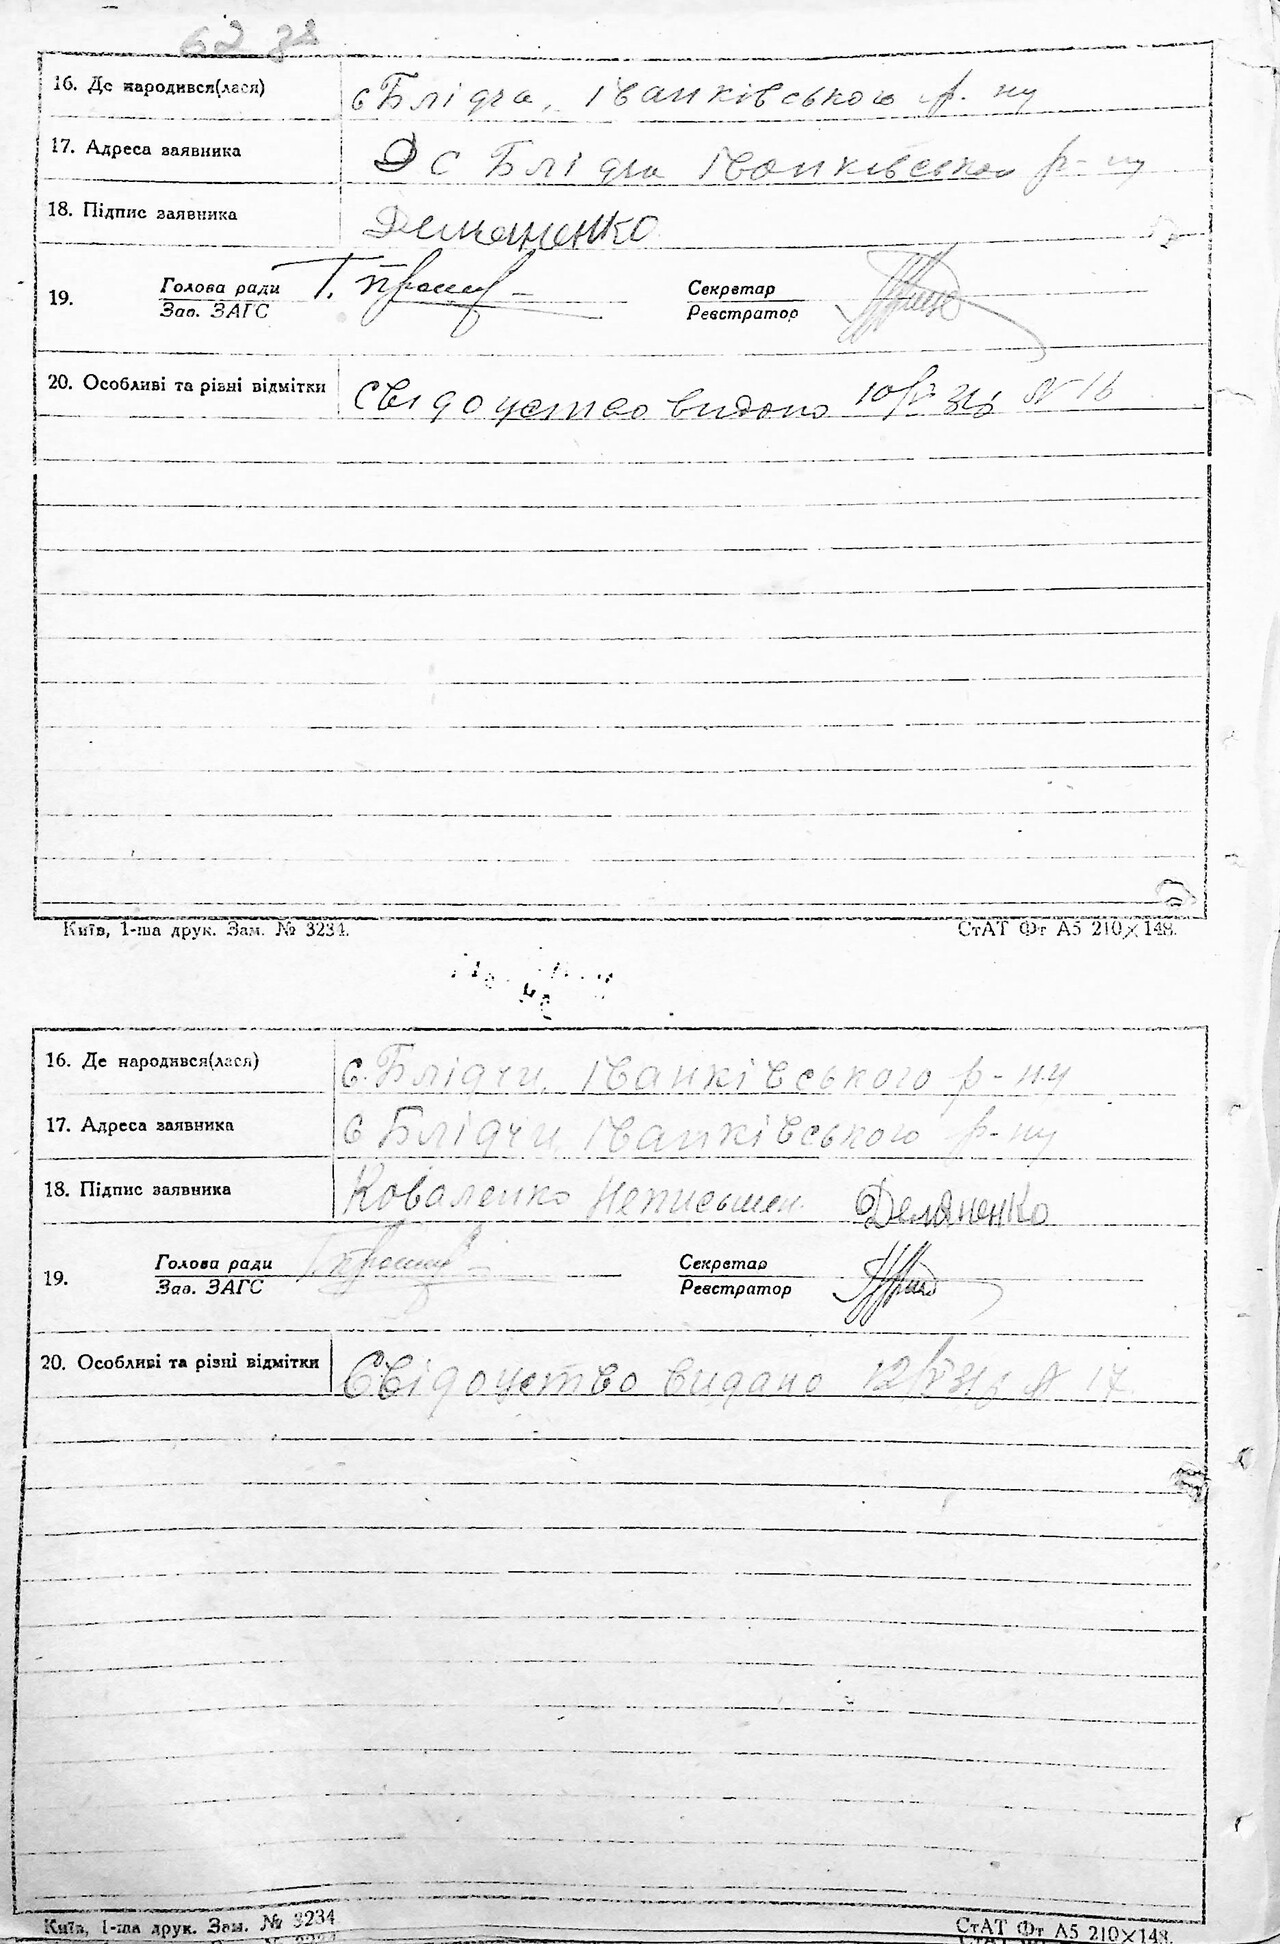 62 зв
16. Де народився(лася) с Блідча, Іванківського р-ну
17. Адреса заявника с Блідча Іванківського р-ну
18. Підпис заявника
19. Голова ради Секретар
Зав. ЗАГС Реєстратор
20. Особливі та різні відмітки Свідоцтво видано № 16
Київ, 1-ша друк. Зам. № 3234. СтАТ Фт А5 210×148.
16. Де народився(лася) с. Блідчи, Іванківського р-ну
17. Адреса заявника с Блідчи, Іванківського р-ну
18. Підпис заявника Коваленко Неписьмен.
19. Голова ради Секретар
Зав. ЗАГС Реєстратор
20. Особливі та різні відмітки Свідоцтво видано № 17
Київ, 1-ша друк. Зам. № 3234 СтАТ Фт А5 210×148.